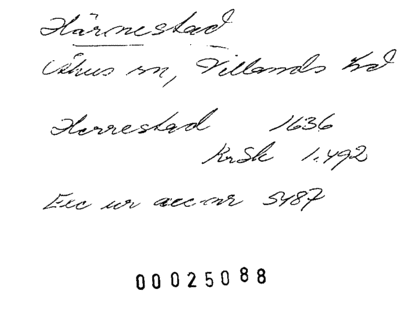 Härnestad
Åhus sn, Villands hd
Herrestad 1636
KrSk 1.492
Exc ur acc-nr 5487
00025088